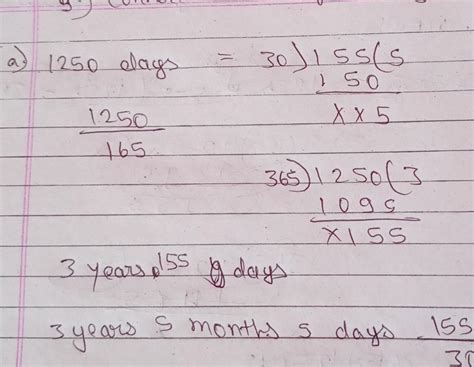 a) 1250 days = 30) 155 (5
150
xx5
1250
165
365) 1250 (3
1095
x155
3 years 155 days
3 years 5 months 5 days 155
30